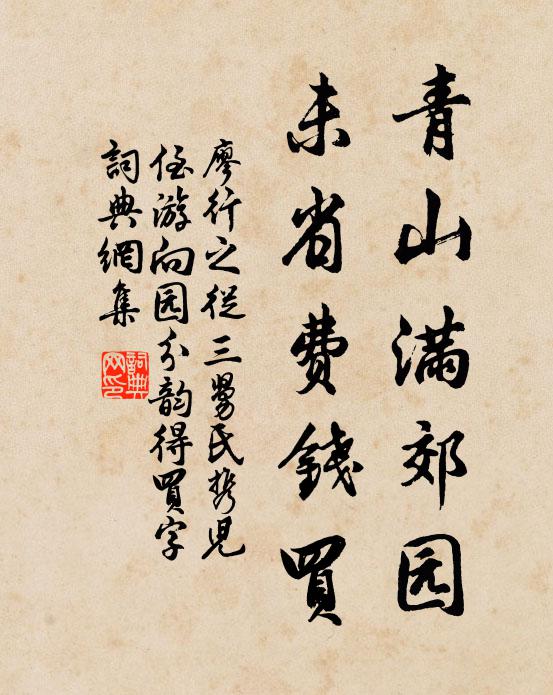 青山满郊园
未省费錢買
廖行之從三舅氏携児
侄游向园分韵得買字
詞典網集
詞典網印